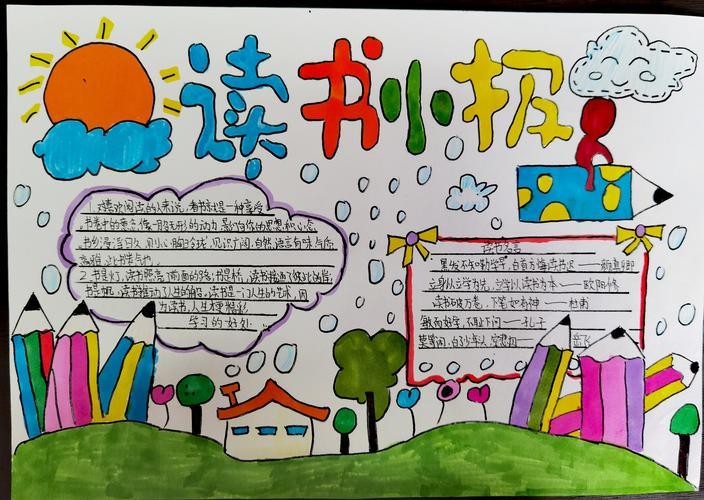 读书小报
1.对喜欢阅读的人来说,看书就是一种享受
书卷中的意念像一股无形的动力,影响你的思想和心态
书多浸淫日久,见识广阔,自然,语言有味与后
2.书是灯,读书照亮了前面的路;书是桥,读书接通了彼此的岸;
书是帆,读书推动了人生的船。读书是一门人生的艺术,因
为读书,人生才更精彩
学习的好处
读书名言
黑发不知勤学早,白首方悔读书迟——颜真卿
立身以立学为先,立学以读书为本——欧阳修
读书破万卷,下笔如有神——杜甫
敏而好学,不耻下问——孔子
莫等闲,白了少年人,空悲切 岳飞